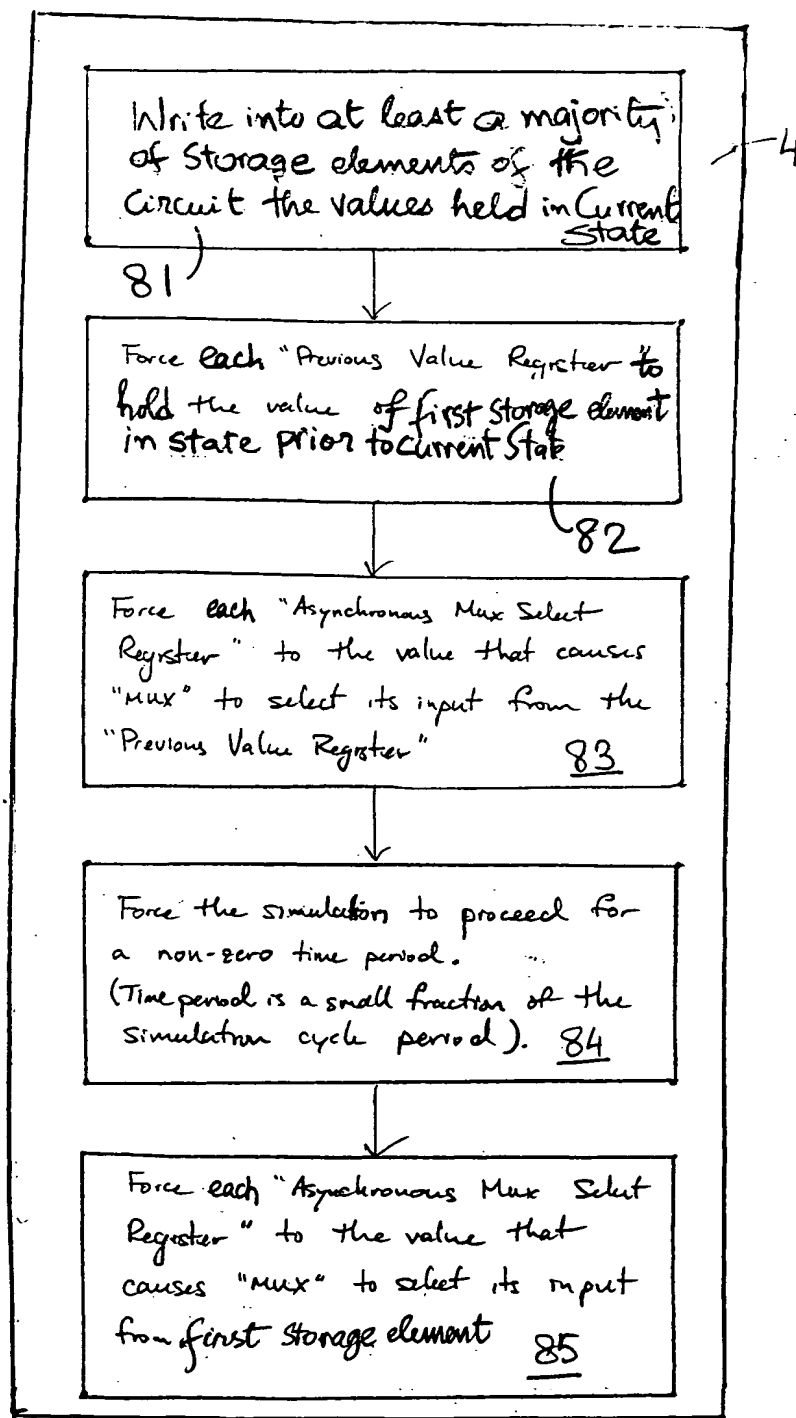 Write into at least a majority
of Storage elements of the
Circuit the values held in Current
State
4
81
Force each "Previous Value Register" to
hold the value of first storage element
in state prior to current State
82
Force each "Asynchronous Mux Select
Register" to the value that causes
"MUX" to select its input from the
"Previous Value Register"
83
Force the simulation to proceed for
a non-zero time period.
(Time period is a small fraction of the
simulation cycle period). 84
Force each "Asynchronous Mux Select
Register" to the value that
causes "MUX" to select its input
from first storage element 85